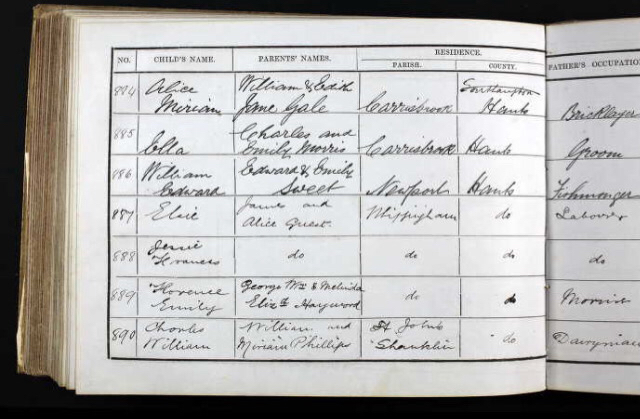 RESIDENCE.
NO. CHILD'S NAME. PARENTS' NAMES. PARISH. COUNTY. FATHER'S OCCUPATIO
884 Alice William & Edith Southampton
Miriam Jane Gale Carrisbrook Hants Bricklayer
885 Charles and
Ella Emily Morris Carrisbrook Hants Groom
886 William Edward & Emily
Edward Sweet Newport Hants Fishmonger
887 Elsie James and Whippingham do Labourer
Alice Guest.
888 Jessie do do do do
Frances
889 Florence George Wm & Melinda
Emily Elizth Haywood do do
890 Charles William and St John's
William Miriam Phillips Shanklin do Dairyman